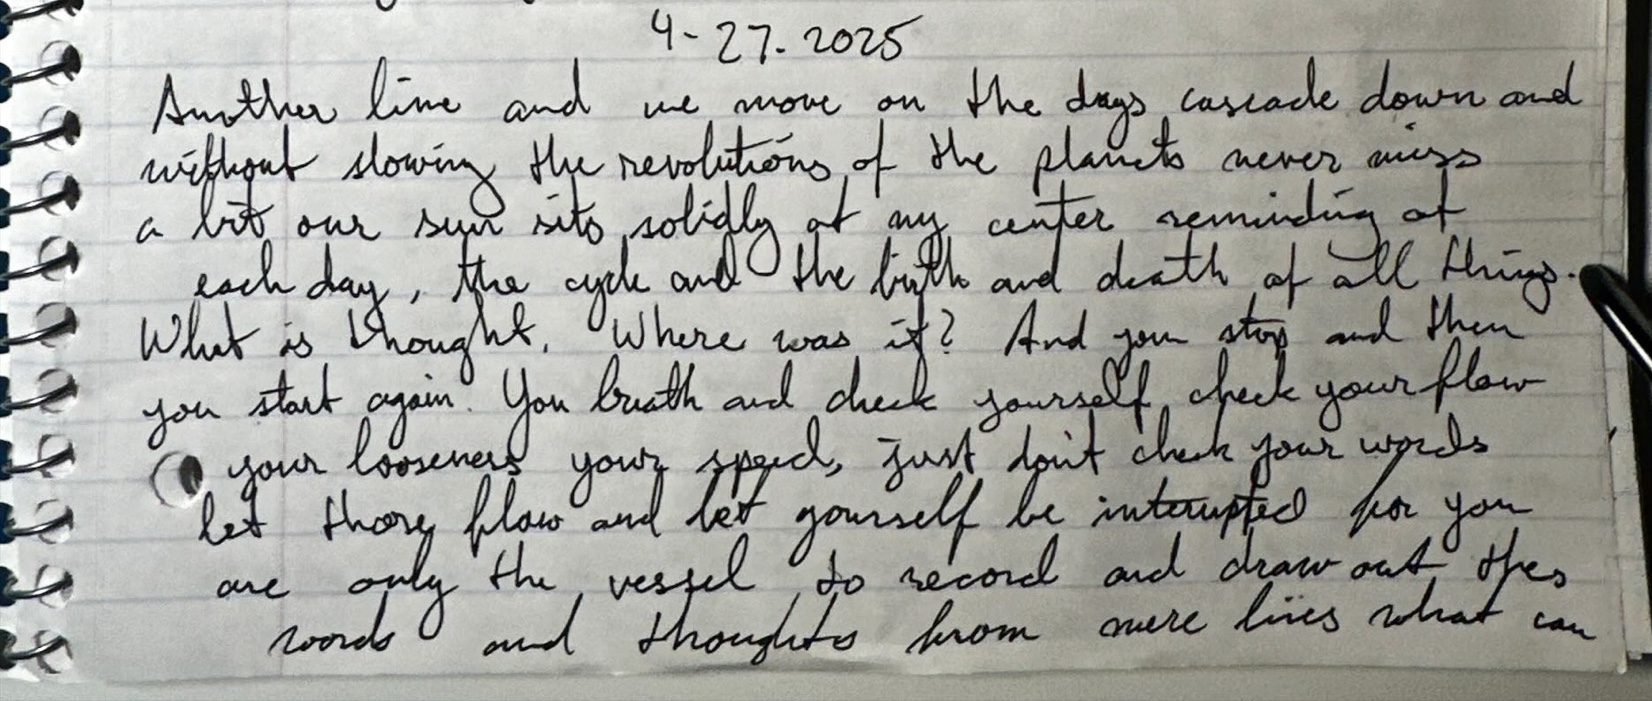 4-27-2025
Another line and we move on the days cascade down and
without slowing the revolutions of the planets never miss
a bit our sun sits solidly at my center reminding at
each day, the cycle and the birth and death of all things.
What is thought. Where was it? And you stop and then
you start again. You breath and check yourself, check your flow
your looseness your speed, just don't check your words
let those flow and let yourself be interrupted for you
are only the vessel to record and draw out thes
words and thoughts from mere lines what can